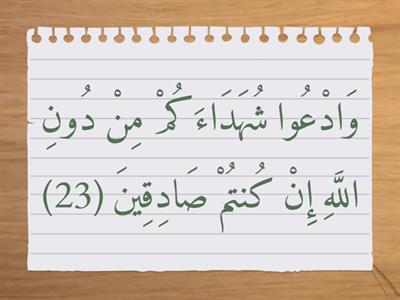 وَادْعُوا شُهَدَاءَكُمْ مِنْ دُونِ
اللَّهِ إِنْ كُنتُمْ صَادِقِينَ (23)